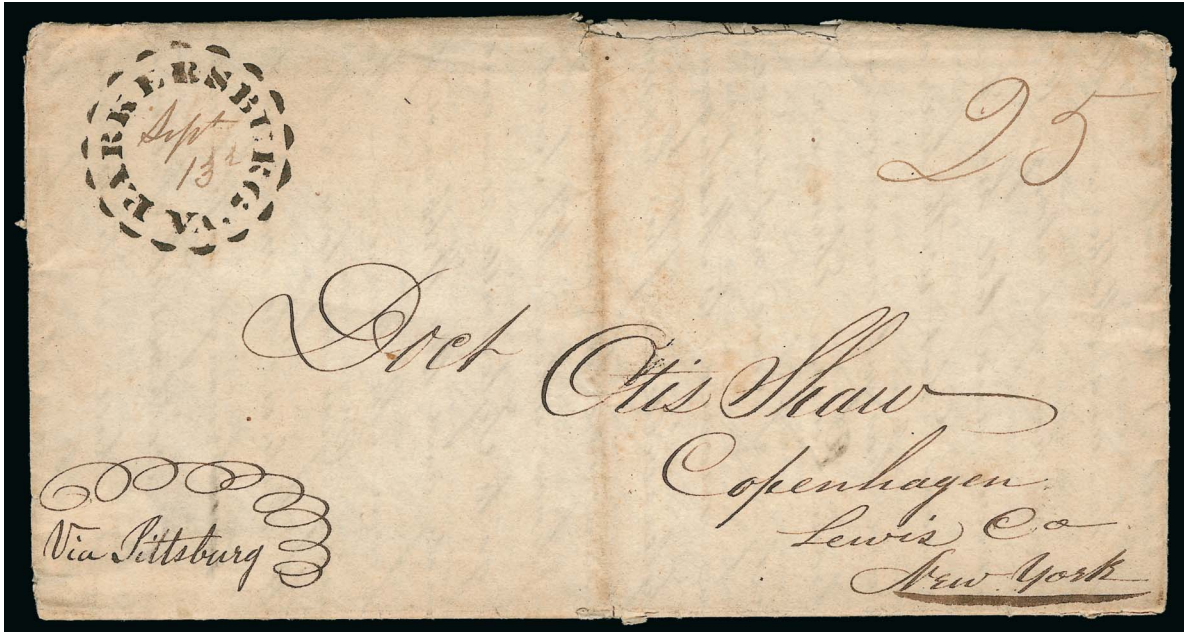 PARKERSBURG. VA
Sept
13d
25
Doct Otis Shaw
Copenhagen.
Lewis Co
New York
Via Pittsburg